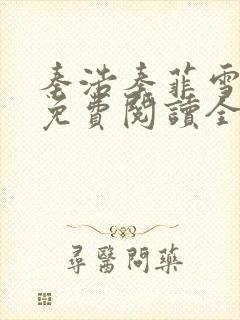 秦浩秦菲雪
免費閱讀全
尋醫問藥